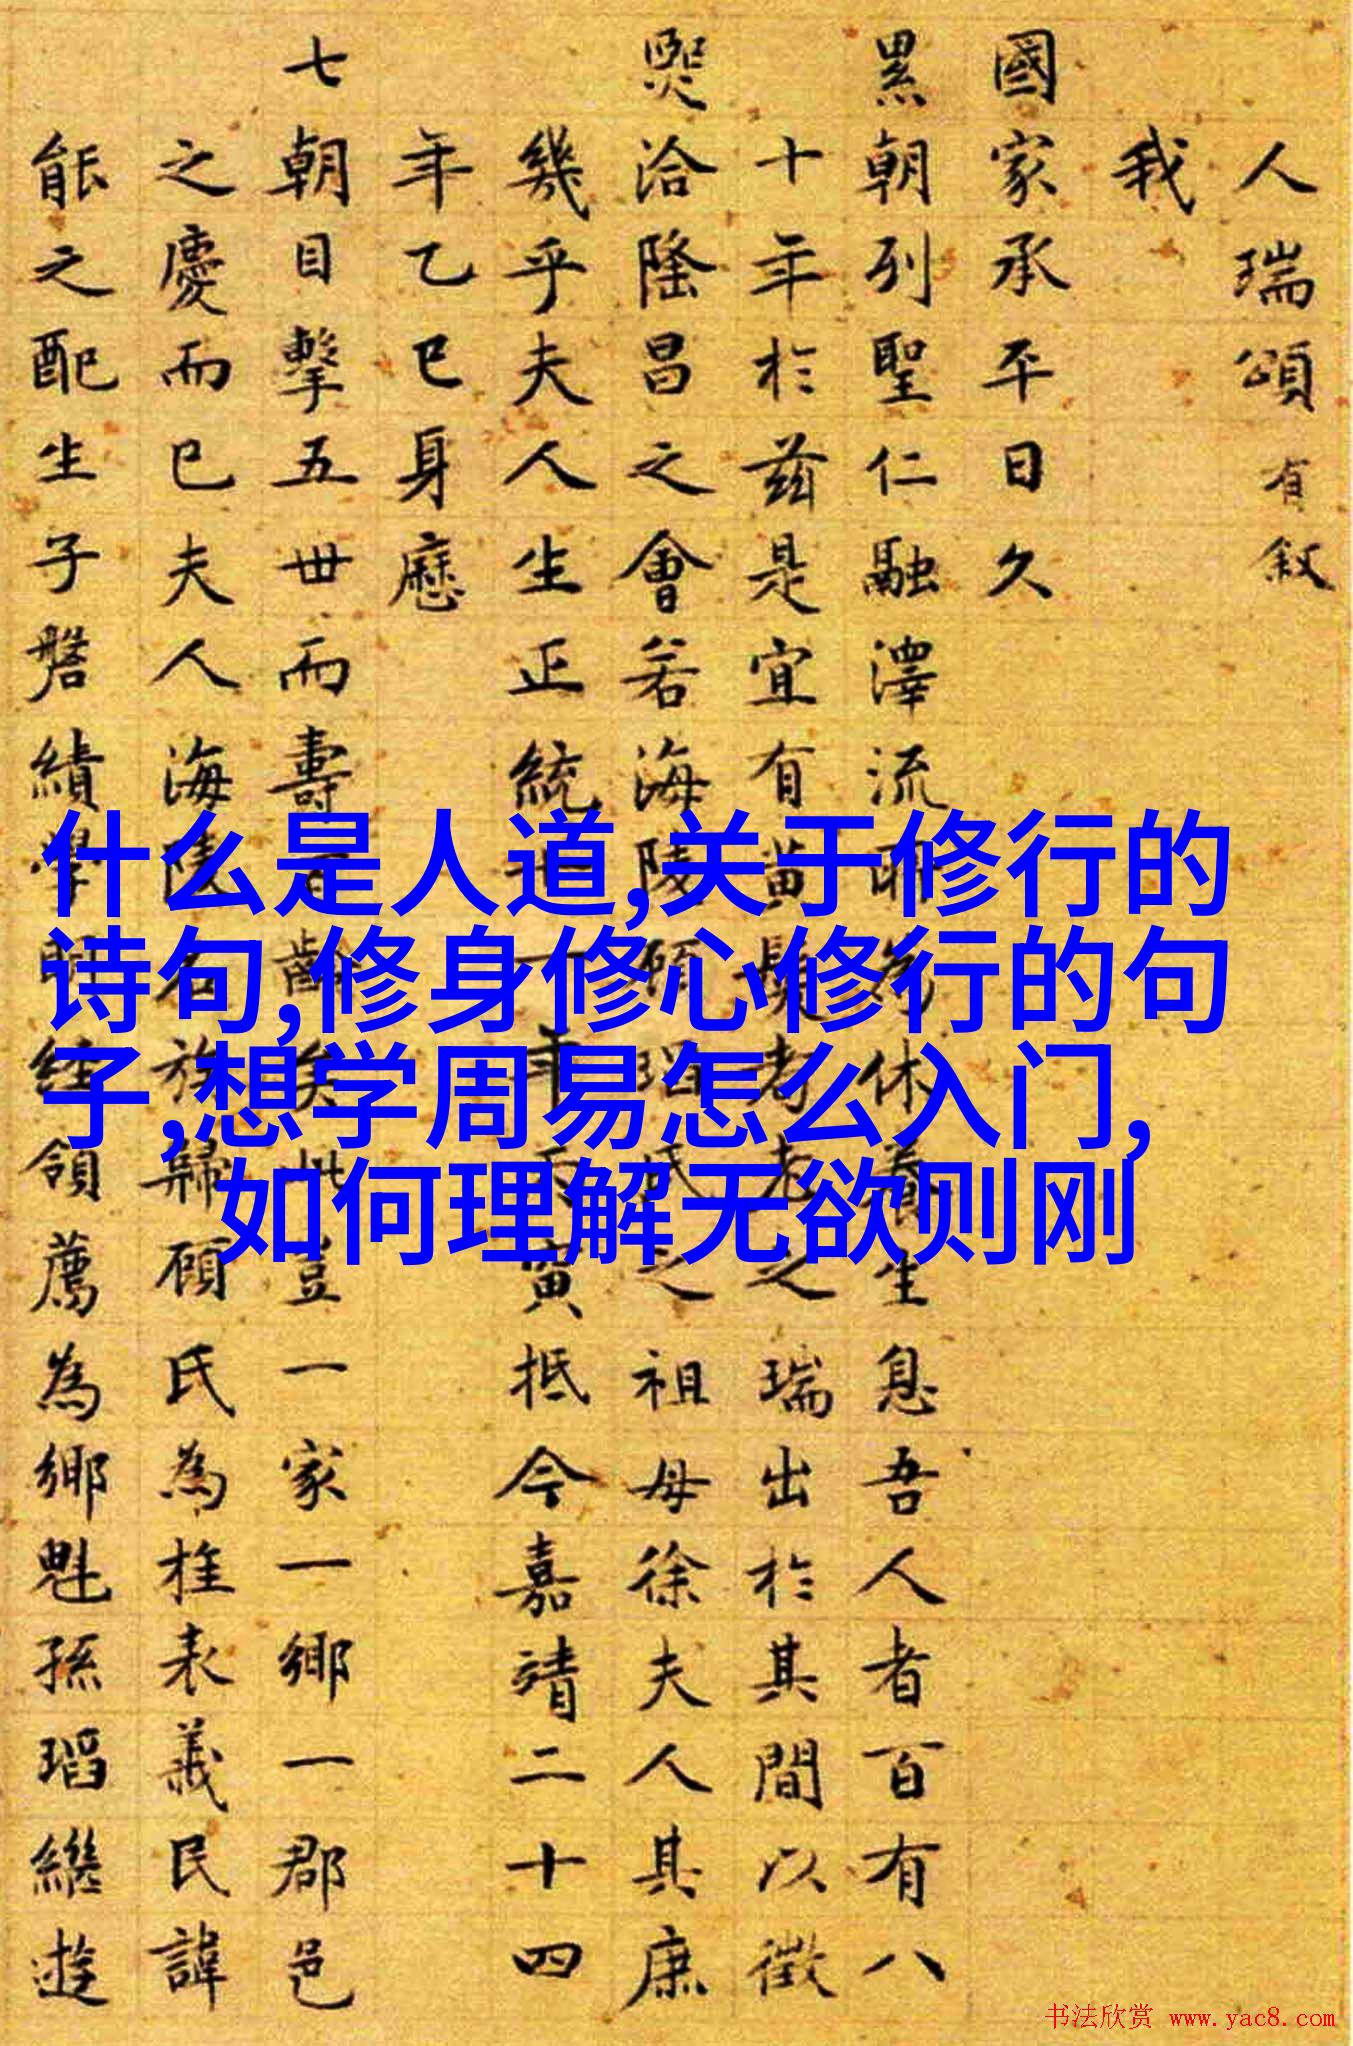 人瑞頌 有敘
我
國家承平日久
累朝列聖仁融澤流休養生息吾人者百有八
十年於茲是宜有黃髮老之瑞出於其間以徵
熙洽隆昌之會若海陵顧瑫氏之祖母徐夫人其庶
幾乎夫人生正統十一年丙寅抵今嘉靖二十四
年乙巳身歷
七朝目擊五世而壽百齡矣此豈一家一鄉一郡邑
之慶而已夫人海陵右族歸顧氏為旌表義民諱
能之配生子磐績學明經領薦為鄉魁孫瑫繼遊
什么是人道,关于修行的
诗句,修身修心修行的句
子,想学周易怎么入门,
如何理解无欲则刚
书法欣赏 www.yac8.com